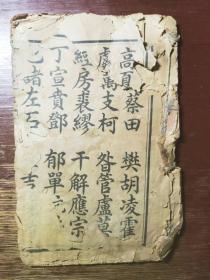 高夏蔡田 樊胡凌霍
虞萬支柯 昝管盧莫
經房裘繆 干解應宗
丁宣賁鄧 郁單
諸左石 吉